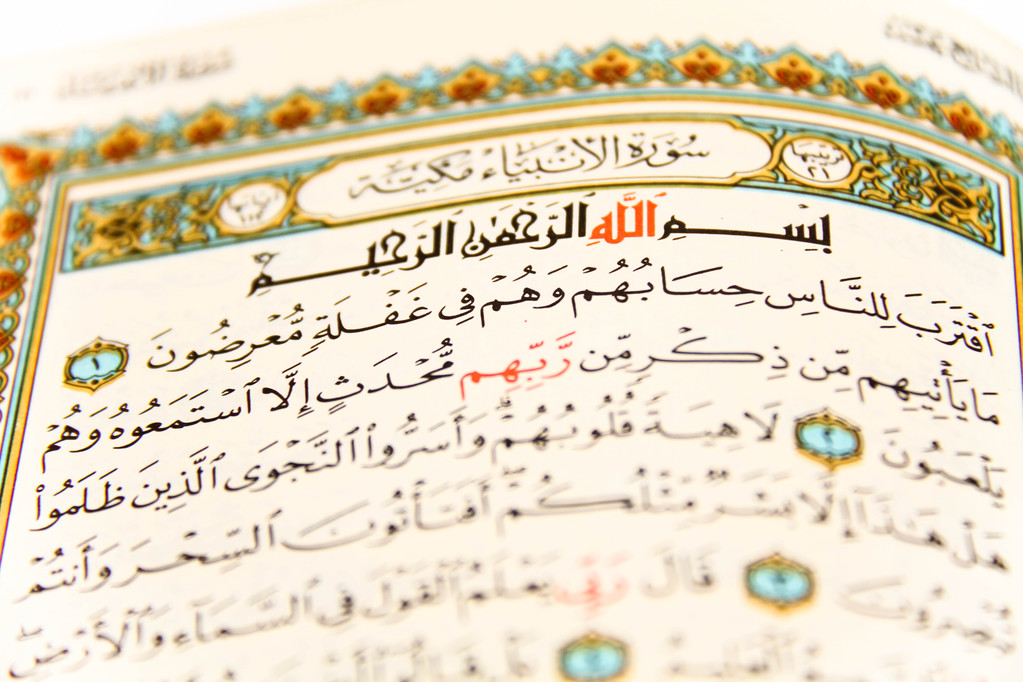 سُورَةُ الأَنْبِيَاءِ مَكِّيَّة
ترتيبها ٢١
آياتها ١١٢
بِسْمِ ٱللَّهِ ٱلرَّحْمَٰنِ ٱلرَّحِيمِ
ٱقْتَرَبَ لِلنَّاسِ حِسَابُهُمْ وَهُمْ فِى غَفْلَةٍ مُّعْرِضُونَ ١
مَا يَأْتِيهِم مِّن ذِكْرٍ مِّن رَّبِّهِم مُّحْدَثٍ إِلَّا ٱسْتَمَعُوهُ وَهُمْ
يَلْعَبُونَ ٢ لَاهِيَةً قُلُوبُهُمْ ۗ وَأَسَرُّوا۟ ٱلنَّجْوَى ٱلَّذِينَ ظَلَمُوا۟
هَلْ هَٰذَآ إِلَّا بَشَرٌ مِّثْلُكُمْ ۖ أَفَتَأْتُونَ ٱلسِّحْرَ وَأَنتُمْ
تُبْصِرُونَ ٣ قَالَ رَبِّى يَعْلَمُ ٱلْقَوْلَ فِى ٱلسَّمَآءِ وَٱلْأَرْضِ ۖ